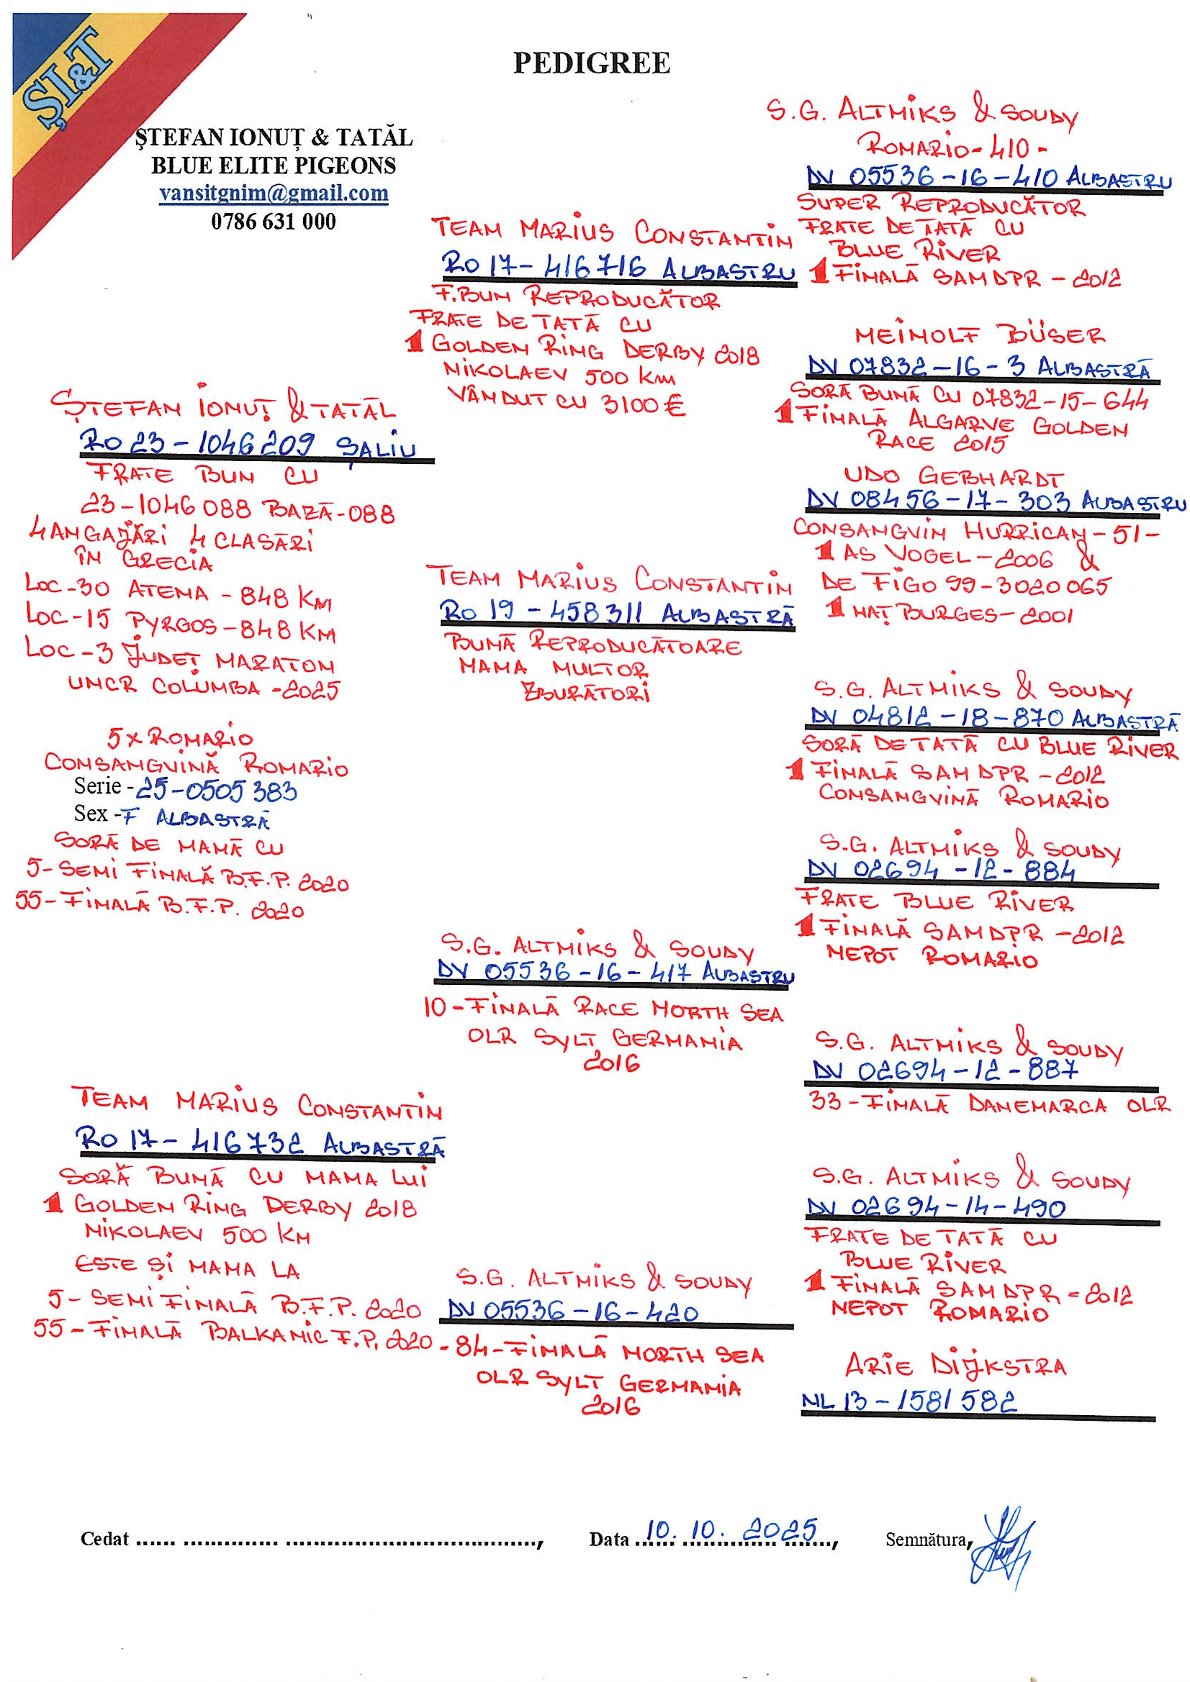 ȘI&T
PEDIGREE
ŞTEFAN IONUȚ & TATĂL
BLUE ELITE PIGEONS
vansitgnim@gmail.com
0786 631 000
ȘTEFAN IONUȚ & TATĂL
RO 23-1046209 ȘALIU
FRATE BUN CU
23-1046088 BAZĂ-088
4 ANGAJĂRI 4 CLASĂRI
ÎN GRECIA
LOC-30 ATENA - 848 KM
LOC-15 PYRGOS-848 KM
LOC-3 JUDEȚ MARATON
UNCR COLUMBA-2025
5x ROMARIO
CONSANGVINĂ ROMARIO
Serie - 25-0505383
Sex - F ALBASTRĂ
SORĂ DE MAMĂ CU
5-SEMI FINALĂ B.F.P. 2020
55-FINALĂ B.F.P. 2020
TEAM MARIUS CONSTANTIN
RO 17-416732 ALBASTRĂ
SORĂ BUNĂ CU MAMA LUI
1 GOLDEN RING DERBY 2018
NIKOLAEV 500 KM
ESTE ȘI MAMA LA
5-SEMI FINALĂ B.F.P. 2020
55-FINALĂ BALKANIC F.P. 2020
TEAM MARIUS CONSTANTIN
RO 17-416716 ALBASTRU
F.BUN REPRODUCĂTOR
FRATE DE TATĂ CU
1 GOLDEN RING DERBY 2018
NIKOLAEV 500 KM
VÂNDUT CU 3100 €
TEAM MARIUS CONSTANTIN
RO 19-458311 ALBASTRĂ
BUNĂ REPRODUCĂTOARE
MAMA MULTOR
ZBURĂTORI
S.G. ALTMIKS & SOUDY
DV 05536-16-417 ALBASTRU
10-FINALĂ RACE NORTH SEA
OLR SYLT GERMANIA
2016
S.G. ALTMIKS & SOUDY
DV 05536-16-420
-84-FINALĂ NORTH SEA
OLR SYLT GERMANIA
2016
S.G. ALTMIKS & SOUDY
ROMARIO-410-
DV 05536-16-410 ALBASTRU
SUPER REPRODUCĂTOR
FRATE DE TATĂ CU
BLUE RIVER
1 FINALĂ SAMDPR-2012
MEINOLF BÜSER
DV 07832-16-3 ALBASTRĂ
SORĂ BUNĂ CU 07832-15-644
1 FINALĂ ALGARVE GOLDEN
RACE 2015
UDO GEBHARDT
DV 08456-17-303 ALBASTRU
CONSANGVIN HURRICAN-51-
1 AS VOGEL-2006 &
DE FIGO 99-3020065
1 NAȚ BURGES-2001
S.G. ALTMIKS & SOUDY
DV 04812-18-870 ALBASTRĂ
SORĂ DE TATĂ CU BLUE RIVER
1 FINALĂ SAMDPR-2012
CONSANGVINĂ ROMARIO
S.G. ALTMIKS & SOUDY
DV 02694-12-884
FRATE BLUE RIVER
1 FINALĂ SAMDPR-2012
NEPOT ROMARIO
S.G. ALTMIKS & SOUDY
DV 02694-12-887
33-FINALĂ DANEMARCA OLR
S.G. ALTMIKS & SOUDY
DV 02694-14-490
FRATE DE TATĂ CU
BLUE RIVER
1 FINALĂ SAMDPR-2012
NEPOT ROMARIO
ARIE DIJKSTRA
NL 13-1581582
Cedat ...... .............. ......................................,
Data 10.10.2025,
Semnătura,